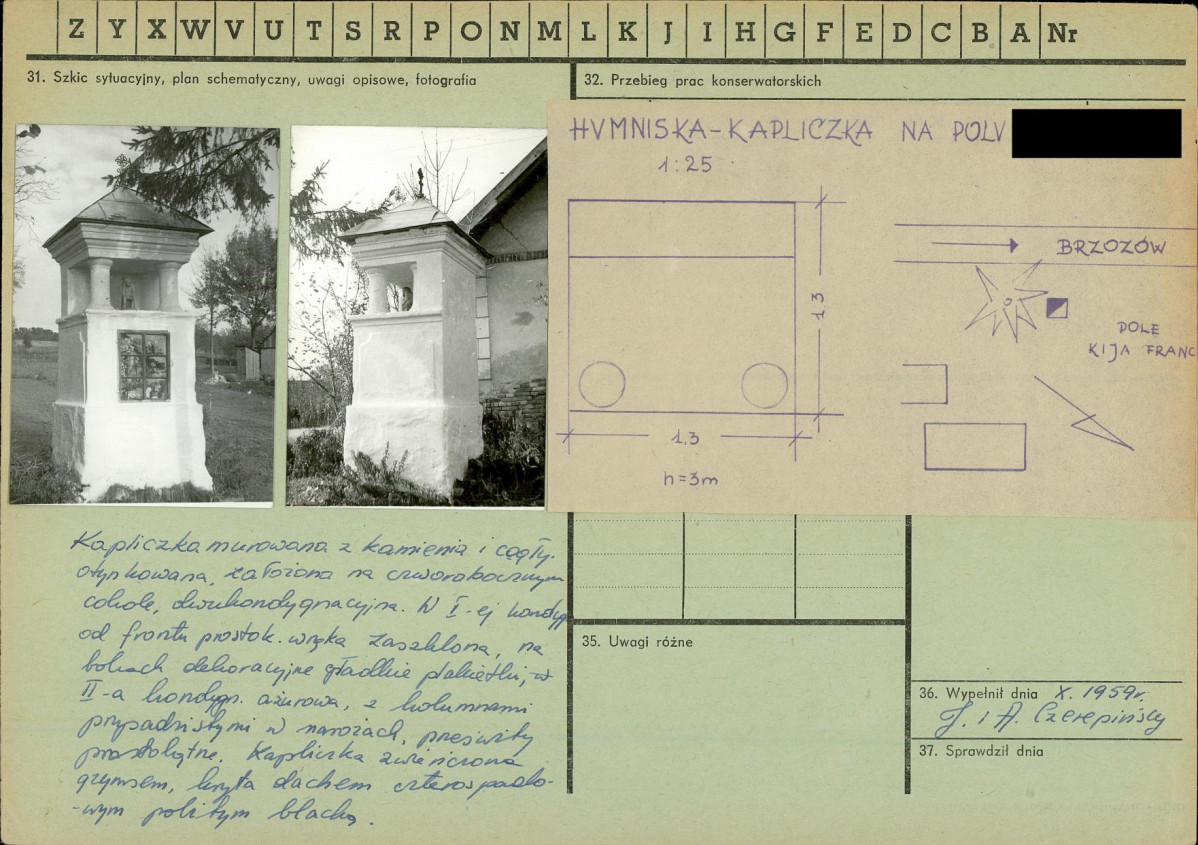 Z Y X W V U T S R P O N M L K J I H G F E D C B A Nr
31. Szkic sytuacyjny, plan schematyczny, uwagi opisowe, fotografia
32. Przebieg prac konserwatorskich
HVMNISKA-KAPLICZKA NA POLV
1:25
BRZOZÓW
1,3
DOLE
KIJA FRANC
1,3
h=3m
Kapliczka murowana z kamienia i cegły.
otynkowana, założona na czworobocznym
cokole, dwukondygnacyjna. W I-ej kondyg
od frontu prostok. wnęka zaszklona, na
bokach dekoracyjne gładkie plakietki, w
II-a kondygn. ażurowa, z kolumnami
przysadzistymi w narożach, prześwity
prostokątne. Kapliczka zwieńczona
gzymsem, kryta dachem czterospado-
-wym pobitym blachą.
35. Uwagi różne
36. Wypełnił dnia X. 1959r.
J. i A. Czerepińscy
37. Sprawdził dnia